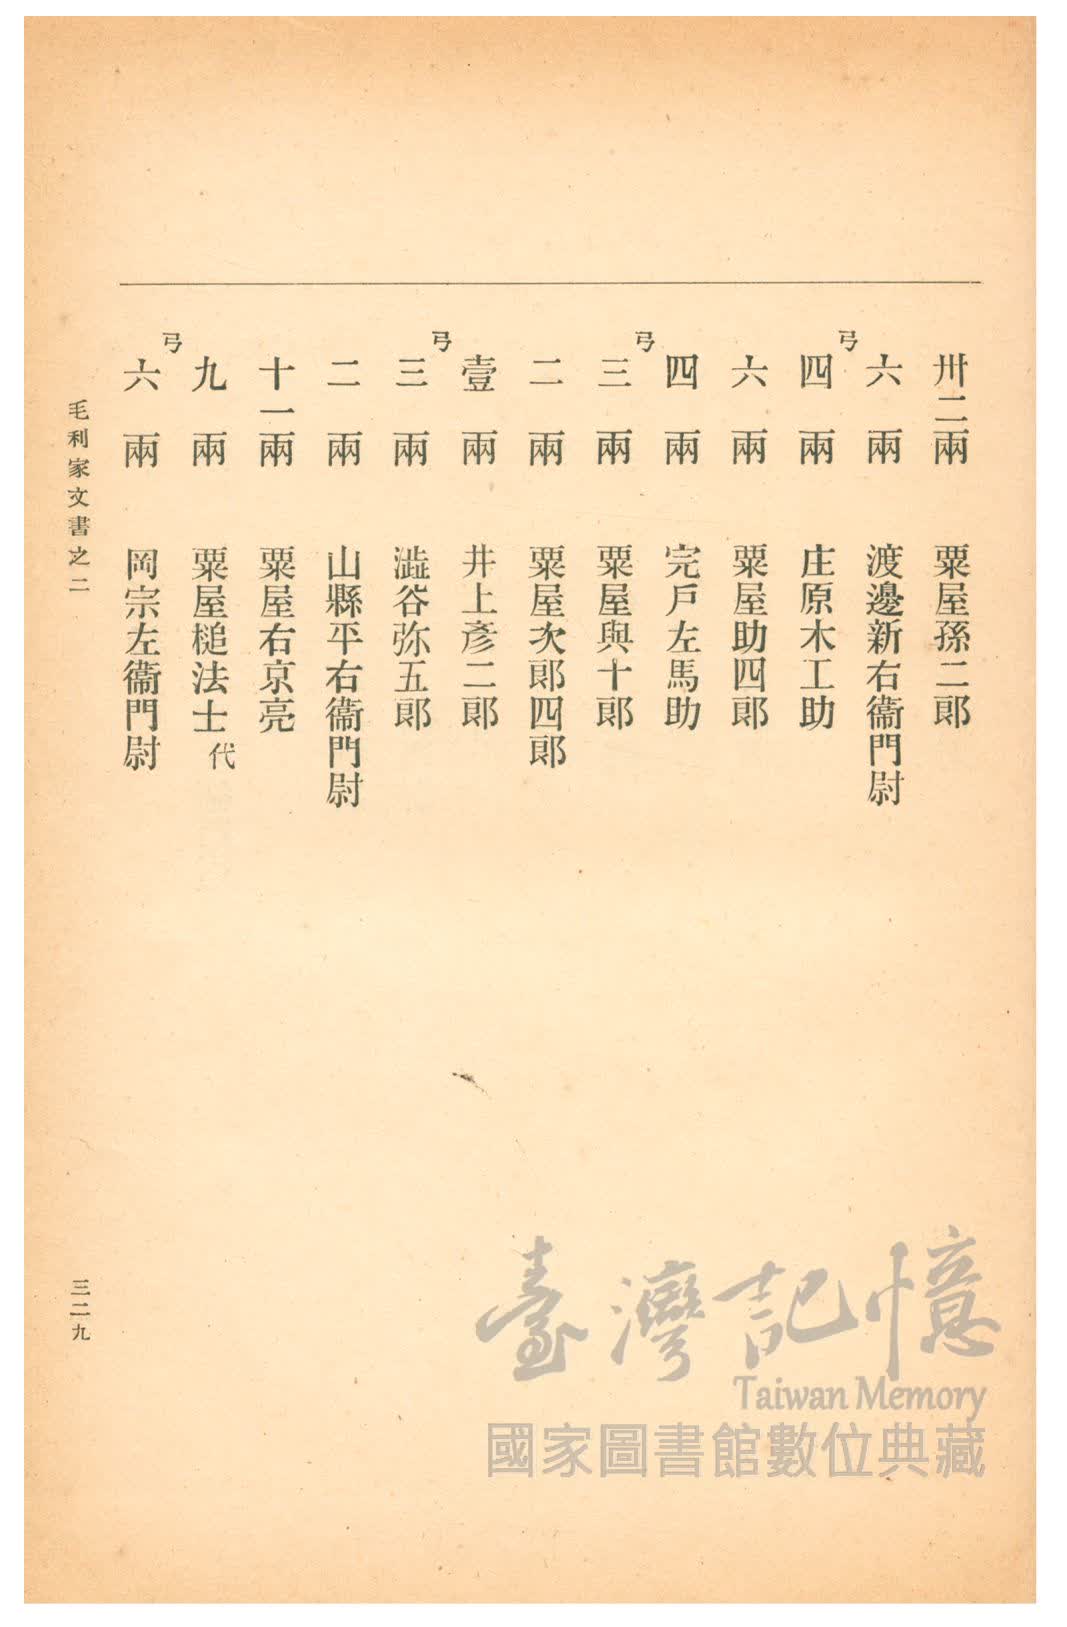 卅二兩 粟屋孫二郎
六兩 渡邊新右衞門尉
弓
四兩 庄原木工助
六兩 粟屋助四郎
四兩 完戶左馬助
弓
三兩 粟屋與十郎
二兩 粟屋次郎四郎
壹兩 井上彥二郎
弓
三兩 澁谷弥五郎
二兩 山縣平右衞門尉
十一兩 粟屋右京亮
九兩 粟屋槌法士代
弓
六兩 岡宗左衞門尉
毛利家文書之二
三二九
臺灣記憶
Taiwan Memory
國家圖書館數位典藏